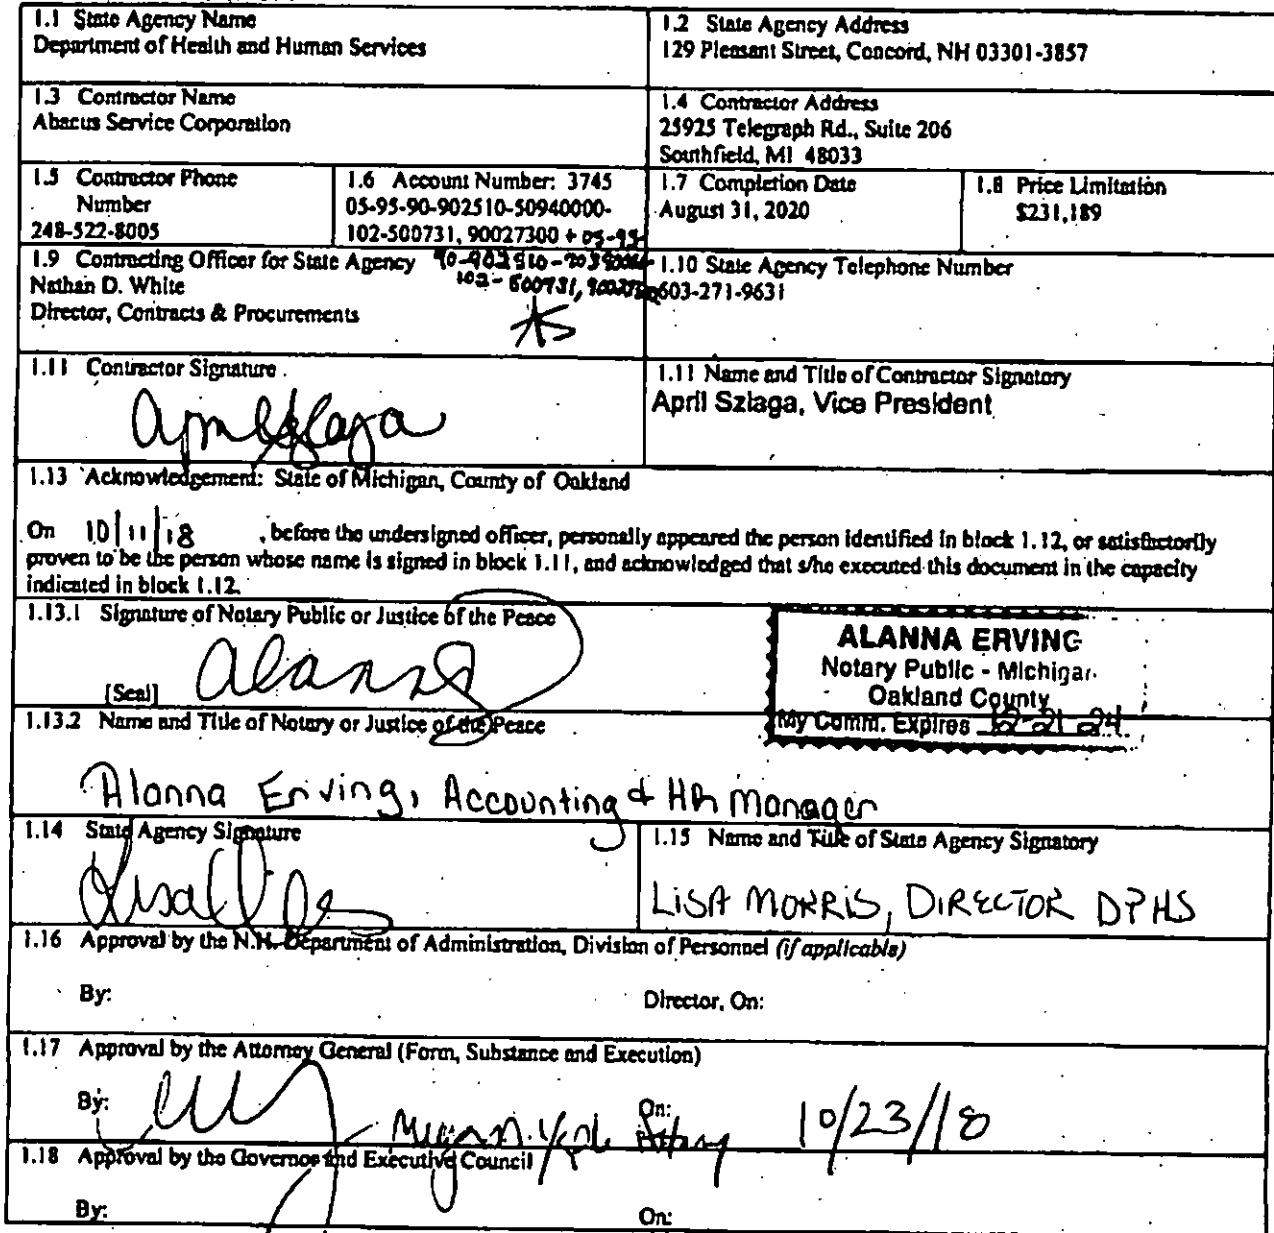 1.1 State Agency Name
Department of Health and Human Services
1.2 State Agency Address
129 Pleasant Street, Concord, NH 03301-3857
1.3 Contractor Name
Abacus Service Corporation
1.4 Contractor Address
25925 Telegraph Rd., Suite 206
Southfield, MI 48033
1.5 Contractor Phone
Number
248-522-8005
1.6 Account Number: 3745
05-95-90-902510-50940000-
102-500731, 90027300 + 05-95-
1.7 Completion Date
August 31, 2020
1.8 Price Limitation
$231,189
1.9 Contracting Officer for State Agency
Nathan D. White
Director, Contracts & Procurements
90-902510-
102-500731,
1.10 State Agency Telephone Number
603-271-9631
1.11 Contractor Signature
1.11 Name and Title of Contractor Signatory
April Szlaga, Vice President
1.13 Acknowledgement: State of Michigan, County of Oakland
On 10/11/18 , before the undersigned officer, personally appeared the person identified in block 1.12, or satisfactorily
proven to be the person whose name is signed in block 1.11, and acknowledged that s/he executed this document in the capacity
indicated in block 1.12.
1.13.1 Signature of Notary Public or Justice of the Peace
Alanna
[Seal]
ALANNA ERVING
Notary Public - Michigan
Oakland County
My Comm. Expires 12-21-24
1.13.2 Name and Title of Notary or Justice of the Peace
Alanna Erving, Accounting & HR Manager
1.14 State Agency Signature
1.15 Name and Title of State Agency Signatory
LISA MORRIS, DIRECTOR DPHS
1.16 Approval by the N.H. Department of Administration, Division of Personnel (if applicable)
By:
Director, On:
1.17 Approval by the Attorney General (Form, Substance and Execution)
By:
On: 10/23/18
1.18 Approval by the Governor and Executive Council
By:
On: